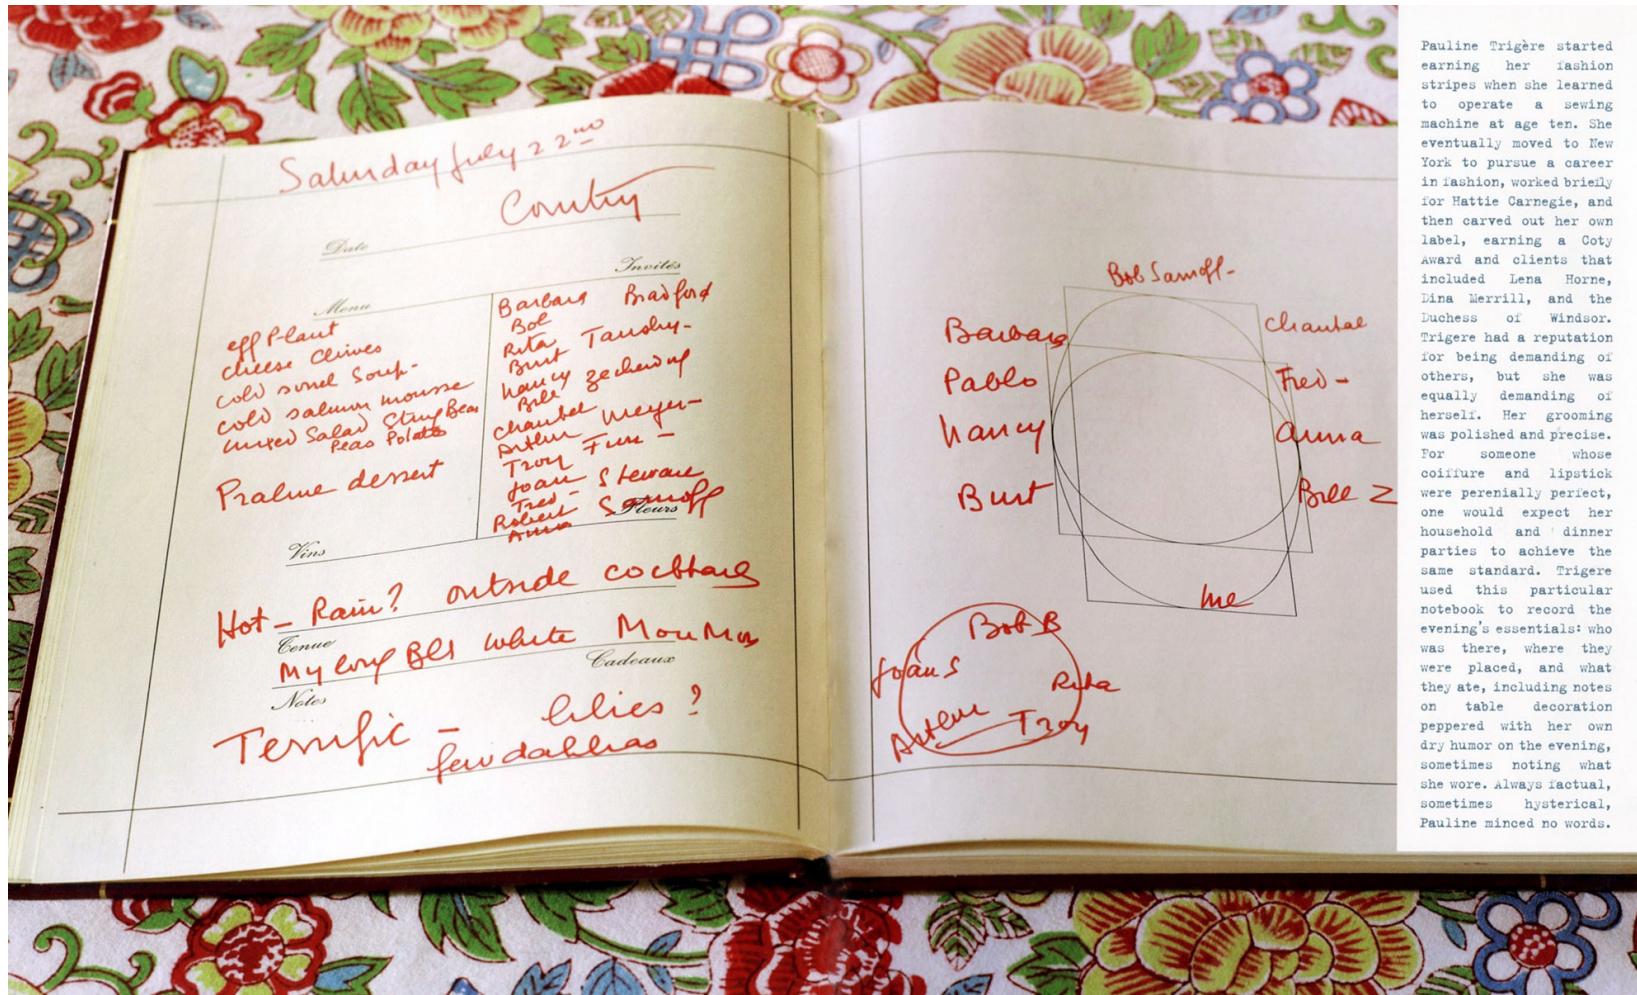 Saturday July 22ND
Country
Date
Invités
Menu
egg Plant
cheese chives
cold sorrel Soup-
cold salmon mousse
mixed Salad String Beas
Peas Potato
Praline dessert
Barbara Bradford
Bob
Rita
Burt Tansky-
Nancy Zeckendorf
Bill
Chantal
Arthur Meyer-
Troy
Joan
Fred - Stewart
Robert Sarnoff
Anna
Fleurs
Vins
Hot - Rain? outside cocktails
Tenue
My long Bls white MouMou
Cadeaux
Notes
Terrific - lilies?
few dahlias
Bob Sarnoff-
Barbara
Chantal
Pablo
Fred -
Nancy
Anna
Burt
Bill Z
Me
Bob B
Joan S
Rita
Arthur
Troy
Pauline Trigère started
earning her fashion
stripes when she learned
to operate a sewing
machine at age ten. She
eventually moved to New
York to pursue a career
in fashion, worked briefly
for Hattie Carnegie, and
then carved out her own
label, earning a Coty
Award and clients that
included Lena Horne,
Dina Merrill, and the
Duchess of Windsor.
Trigere had a reputation
for being demanding of
others, but she was
equally demanding of
herself. Her grooming
was polished and precise.
For someone whose
coiffure and lipstick
were perenially perfect,
one would expect her
household and dinner
parties to achieve the
same standard. Trigere
used this particular
notebook to record the
evening's essentials: who
was there, where they
were placed, and what
they ate, including notes
on table decoration
peppered with her own
dry humor on the evening,
sometimes noting what
she wore. Always factual,
sometimes hysterical,
Pauline minced no words.